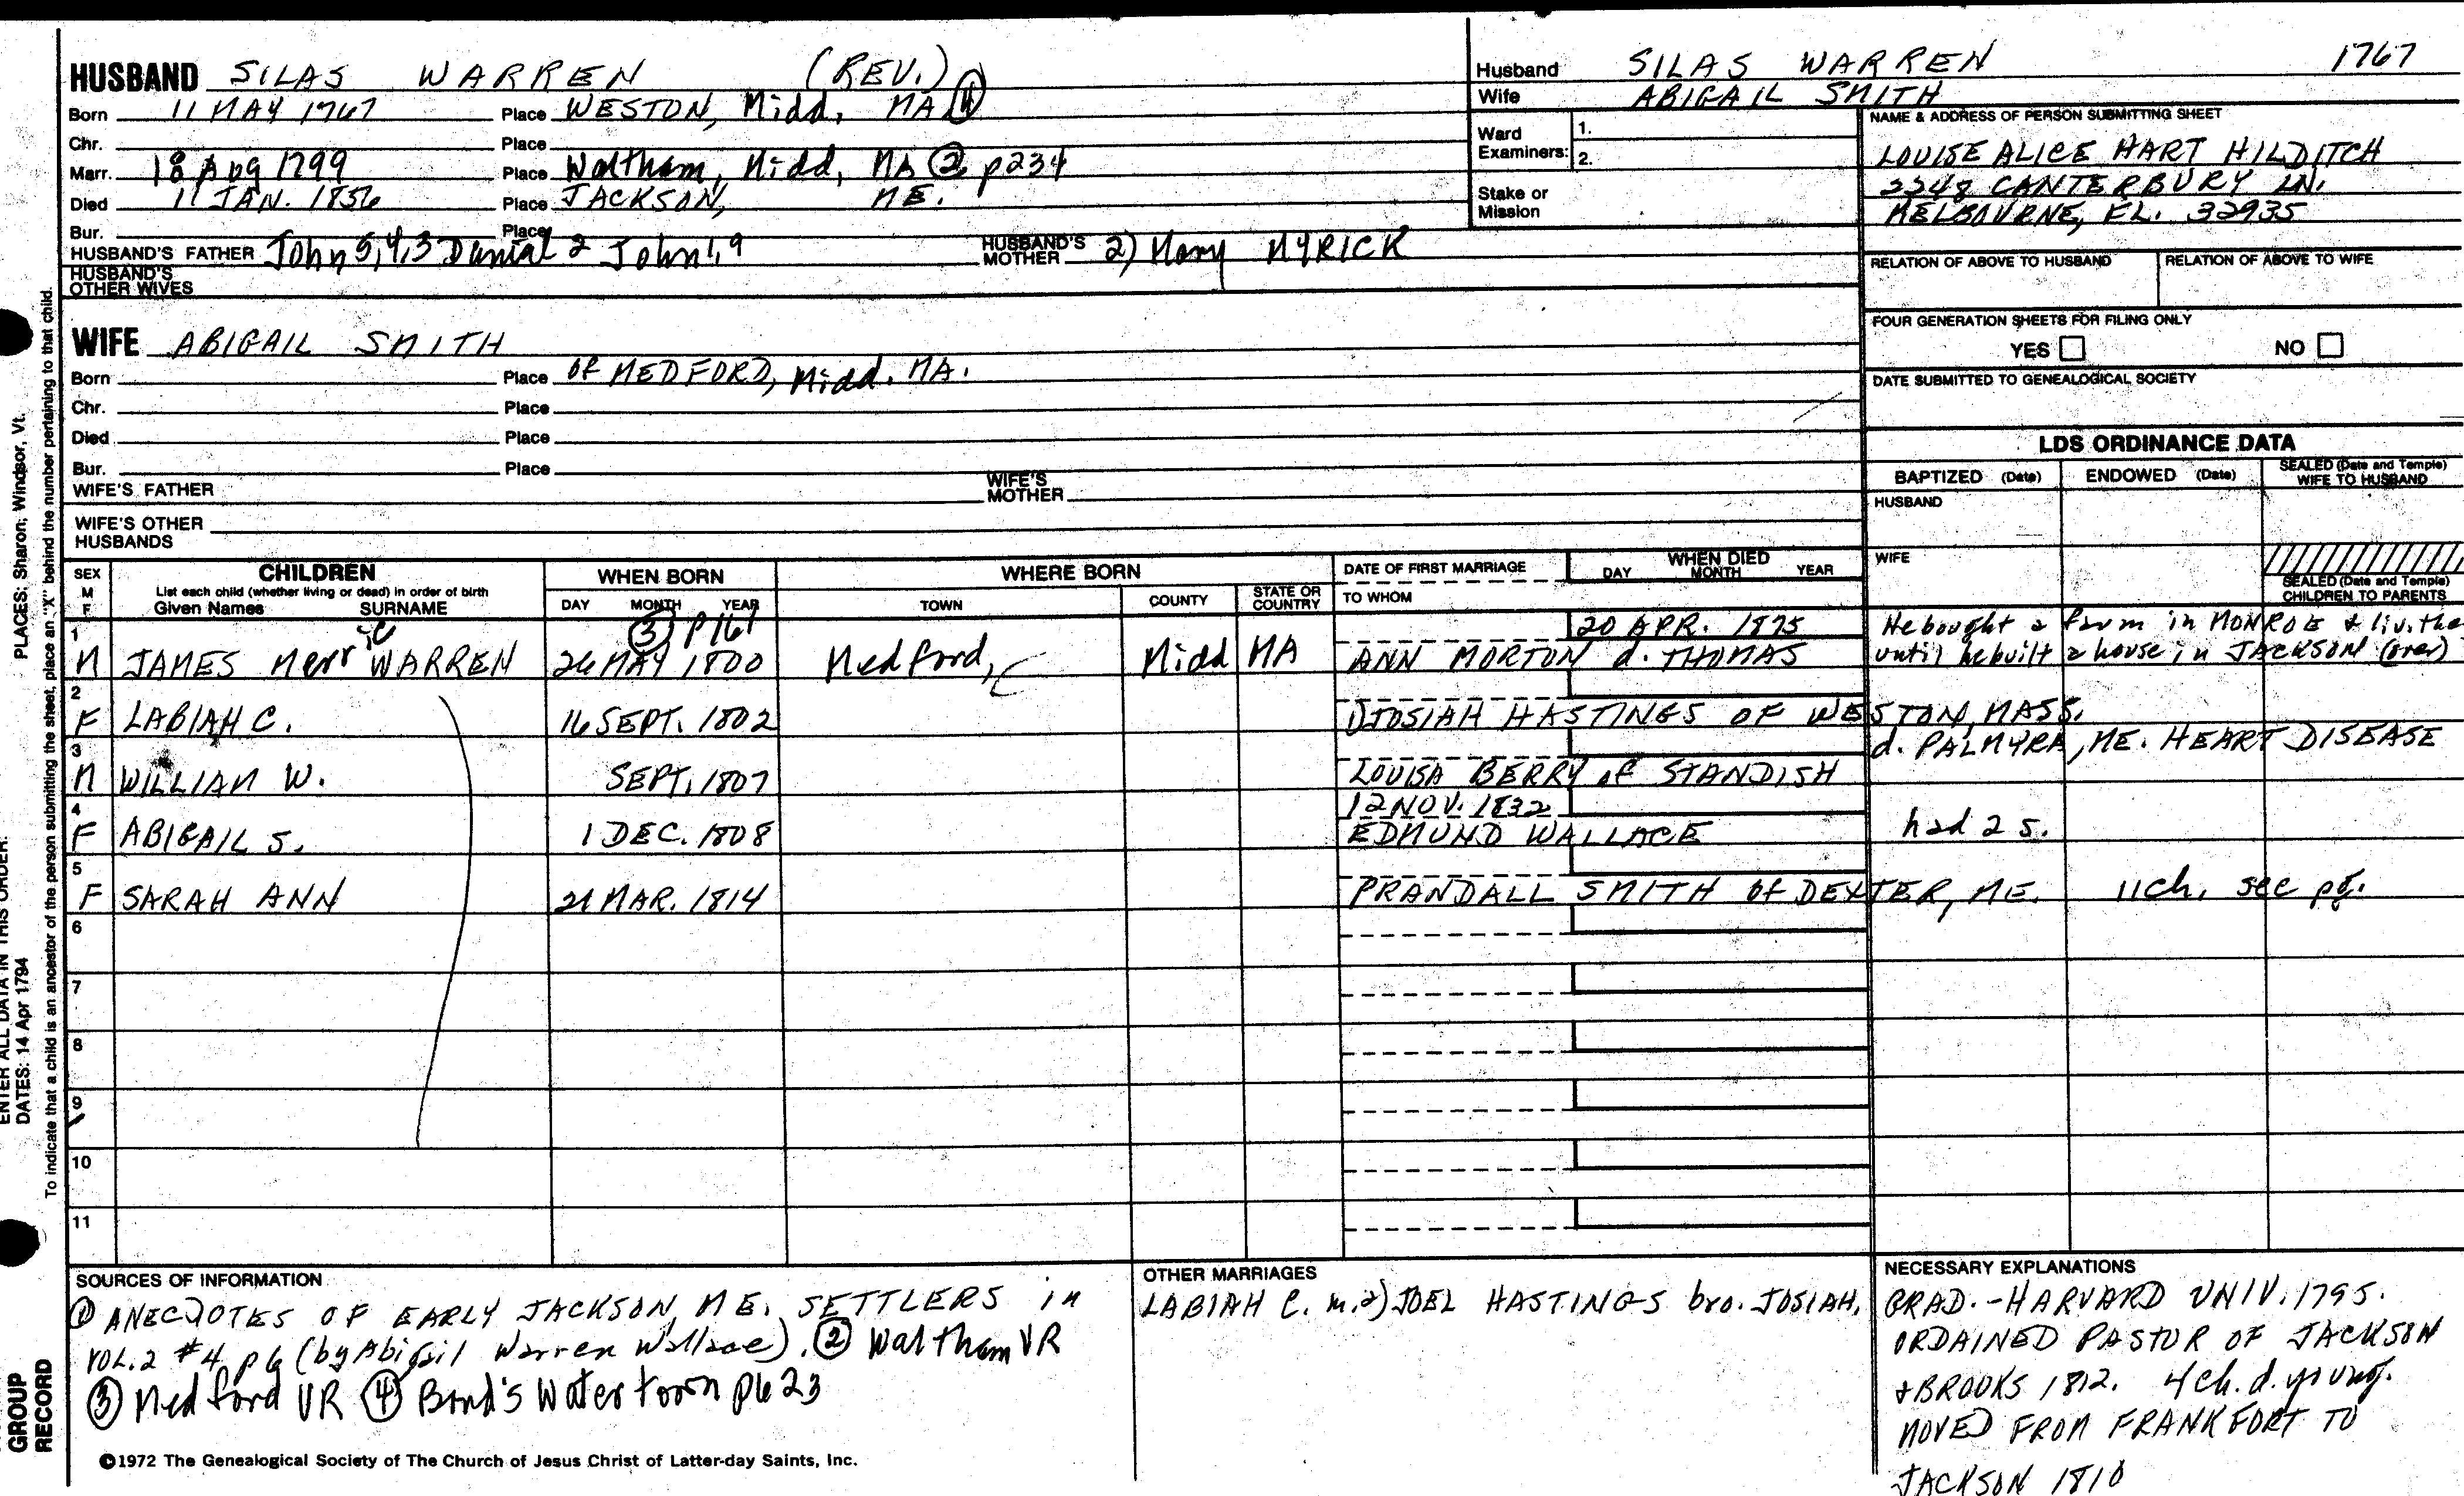 HUSBAND SILAS WARREN (REV.)
Born 11 MAY 1767 Place WESTON, Midd, MA ④
Chr. Place
Marr. 18 Aug 1799 Place Waltham, Midd, MA ② p234
Died 11 JAN. 1856 Place JACKSON, ME.
Bur. Place
HUSBAND'S FATHER John 5,4,3 Danial 2 John 1,9 HUSBAND'S MOTHER 2) Mary MYRICK
HUSBAND'S OTHER WIVES
Husband SILAS WARREN 1767
Wife ABIGAIL SMITH
Ward Examiners: 1.
2.
Stake or Mission
NAME & ADDRESS OF PERSON SUBMITTING SHEET
LOUISE ALICE HART HILDITCH
2248 CANTERBURY LN.
MELBOURNE, FL. 32935
RELATION OF ABOVE TO HUSBAND RELATION OF ABOVE TO WIFE
FOUR GENERATION SHEETS FOR FILING ONLY
YES NO
DATE SUBMITTED TO GENEALOGICAL SOCIETY
WIFE ABIGAIL SMITH
Born Place OF MEDFORD, Midd. MA.
Chr. Place
Died Place
Bur. Place
WIFE'S FATHER WIFE'S MOTHER
WIFE'S OTHER HUSBANDS
LDS ORDINANCE DATA
BAPTIZED (Date) ENDOWED (Date) SEALED (Date and Temple) WIFE TO HUSBAND
HUSBAND
WIFE
SEALED (Date and Temple) CHILDREN TO PARENTS
SEX M F CHILDREN WHEN BORN WHERE BORN DATE OF FIRST MARRIAGE WHEN DIED
List each child (whether living or dead) in order of birth DAY MONTH YEAR
Given Names SURNAME DAY MONTH YEAR TOWN COUNTY STATE OR COUNTRY TO WHOM
1 ③ p161 20 APR. 1875 He bought a farm in MONROE & liv. the
M JAMES Merric WARREN 26 MAY 1800 Medford, Midd MA ANN MORTON d. THOMAS until he built a house in JACKSON (over)
2
F LABIAH C. 16 SEPT. 1802 1) JOSIAH HASTINGS OF WESTON, MASS.
3 d. PALMYRA, ME. HEART DISEASE
M WILLIAM W. SEPT. 1807 LOUISA BERRY of STANDISH
4 12 NOV. 1832
F ABIGAIL S. 1 DEC. 1808 EDMUND WALLACE had 2 s.
5
F SARAH ANN 21 MAR. 1814 PRANDALL SMITH of DEXTER, ME. 11 ch. sec pg.
6
7
8
9
10
11
SOURCES OF INFORMATION
① ANECDOTES OF EARLY JACKSON, ME. SETTLERS in
VOL. 2 #4 p6 (by Abigail Warren Wallace). ② Waltham VR
③ Medford VR ④ Bond's Watertown p623
OTHER MARRIAGES
LABIAH C. m. 2) JOEL HASTINGS bro. JOSIAH.
NECESSARY EXPLANATIONS
GRAD. - HARVARD UNIV. 1795.
ORDAINED PASTOR OF JACKSON
& BROOKS 1812. 4 ch. d. young.
MOVED FROM FRANKFORT TO
JACKSON 1810
©1972 The Genealogical Society of The Church of Jesus Christ of Latter-day Saints, Inc.
GROUP
RECORD
ENTER ALL DATA IN THIS ORDER:
DATES: 14 Apr 1794 PLACES: Sharon, Windsor, Vt.
To indicate that a child is an ancestor of the person submitting the sheet, place an "X" behind the number pertaining to that child.